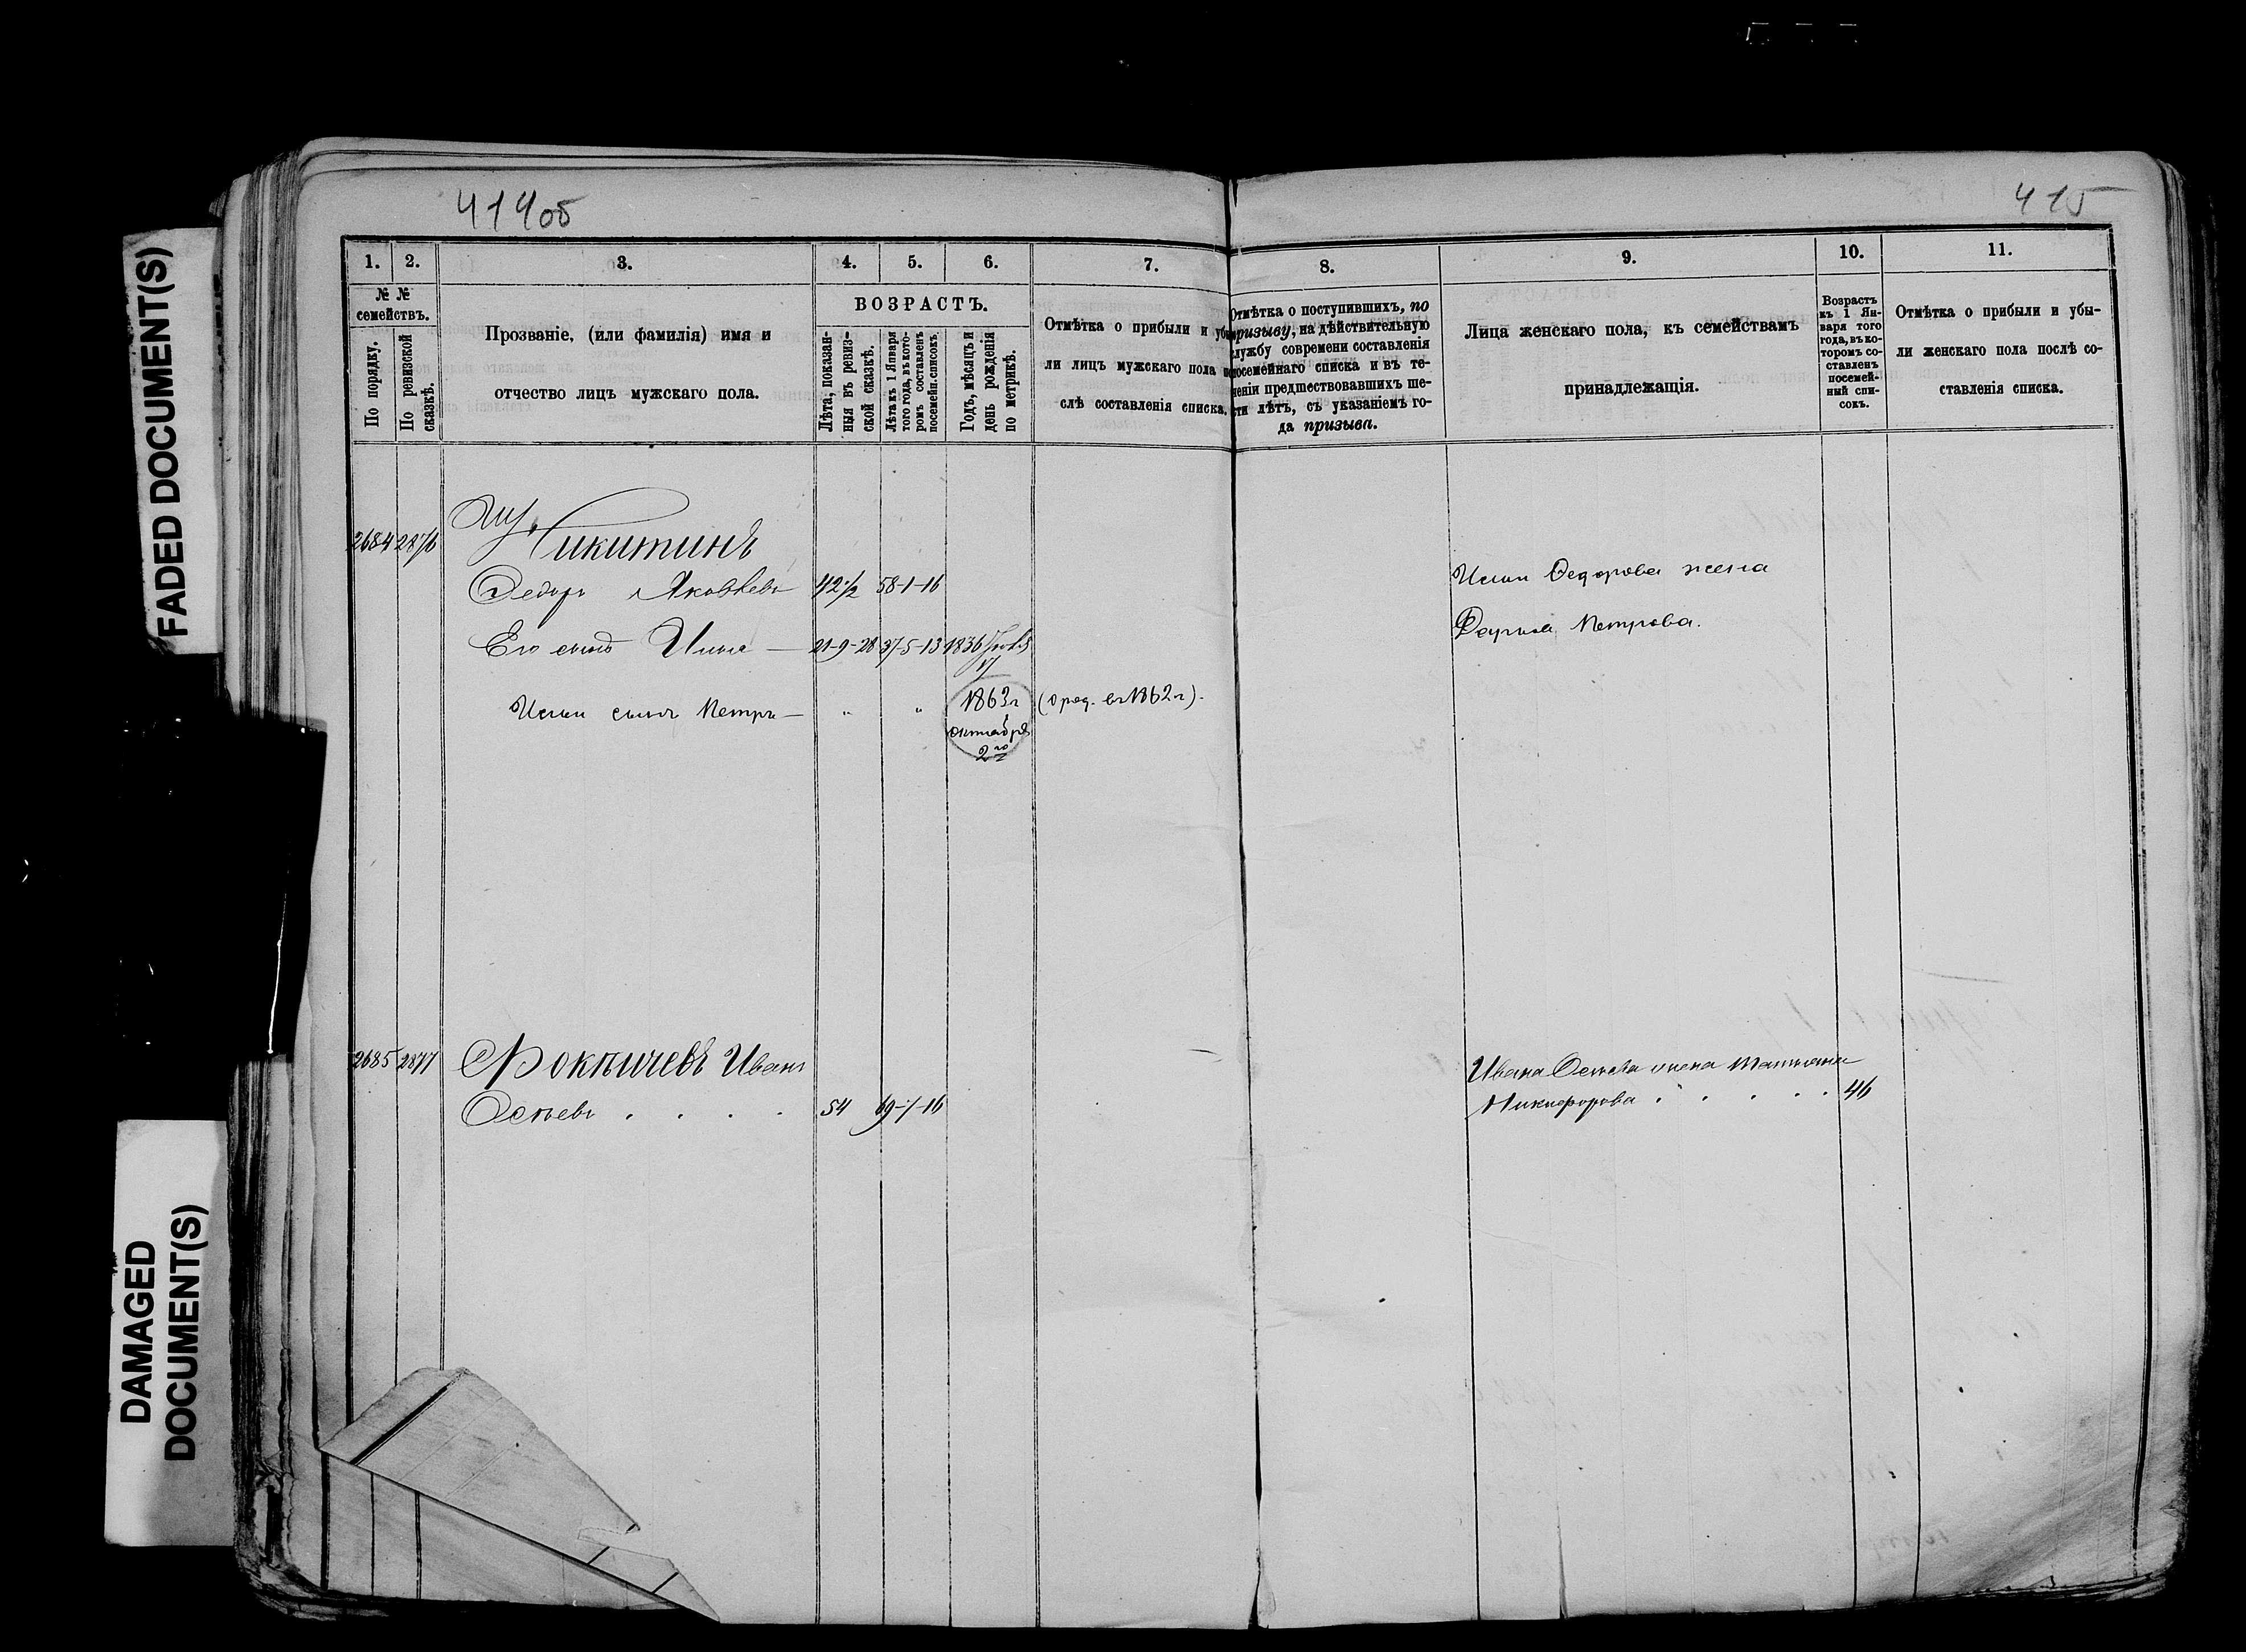 FADED DOCUMENT(S)
DAMAGED
DOCUMENT(S)
414об
415
1.
2.
3.
4.
5.
6.
7.
8.
9.
10.
11.
№ №
семействъ.
По порядку.
По ревизской
сказкѣ.
Прозваніе, (или фамилія) имя и
отчество лицъ мужскаго пола.
ВОЗРАСТЪ.
Лѣта, показан-
ныя въ ревиз-
ской сказкѣ.
Лѣта къ 1 Января
того года, въ кото-
ромъ составленъ
посемейн. списокъ.
Годъ, мѣсяцъ и
день рожденія
по метрикѣ.
Отмѣтка о прибыли и убы
ли лицъ мужскаго пола по
слѣ составленія списка.
Отмѣтка о поступившихъ, по
призыву, на дѣйствительную
службу современи составленія
посемейнаго списка и въ те-
ченіи предшествовавшихъ ше-
сти лѣтъ, съ указаніемъ го-
да призыва.
Лица женскаго пола, къ семействамъ
принадлежащія.
Возрастъ
къ 1 Ян-
варя того
года, въ ко-
торомъ со-
ставленъ
посемей-
ный спи-
сокъ.
Отмѣтка о прибыли и убы-
ли женскаго пола послѣ со-
ставленія списка.
2684 2876 Никитинъ
Федоръ Яковлевъ 42½ 58-1-16
Его сынъ Илья — 21-9-28 37-5-13 1836
17
Ильи сынъ Петръ — " " 1863 г (о род. въ 1862 г).
октября
2го
Ильи Федорова жена
Дарья Петрова.
2685 2877 Иванъ
Осиевъ . . . . 54 69-1-16
Ивана жена Татьяна
Никифорова . . . . . 46